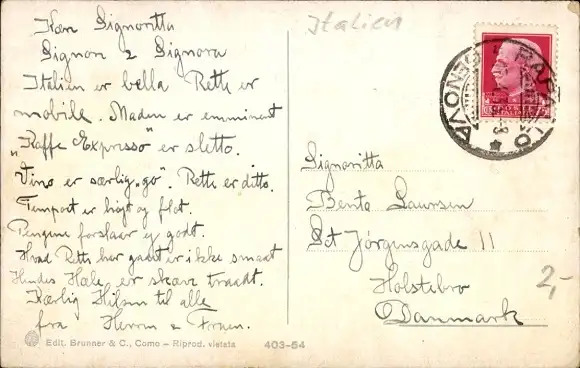 Kære Signoritta
Signor & Signora
Italien er bella Rette er
mobile. Maden er emminent
"Kaffe Expresso" er sletto.
Vino er særlig "go". Rette er ditto.
Tempoet er højt og flot.
Pengene forslaar ej godt.
Hvad Rette har gaaet er ikke smaat
Hindes Hæle er skæve traadt.
Kærlig Hilsen til alle
fra Herren & Fruen.
Edit. Brunner & C., Como – Riprod. vietata 403-54
Italien
RAPALLO
GENOVA
Signoritta
Bente Laursen
Sct Jörgensgade 11
Holstebro
Danmark
2,-